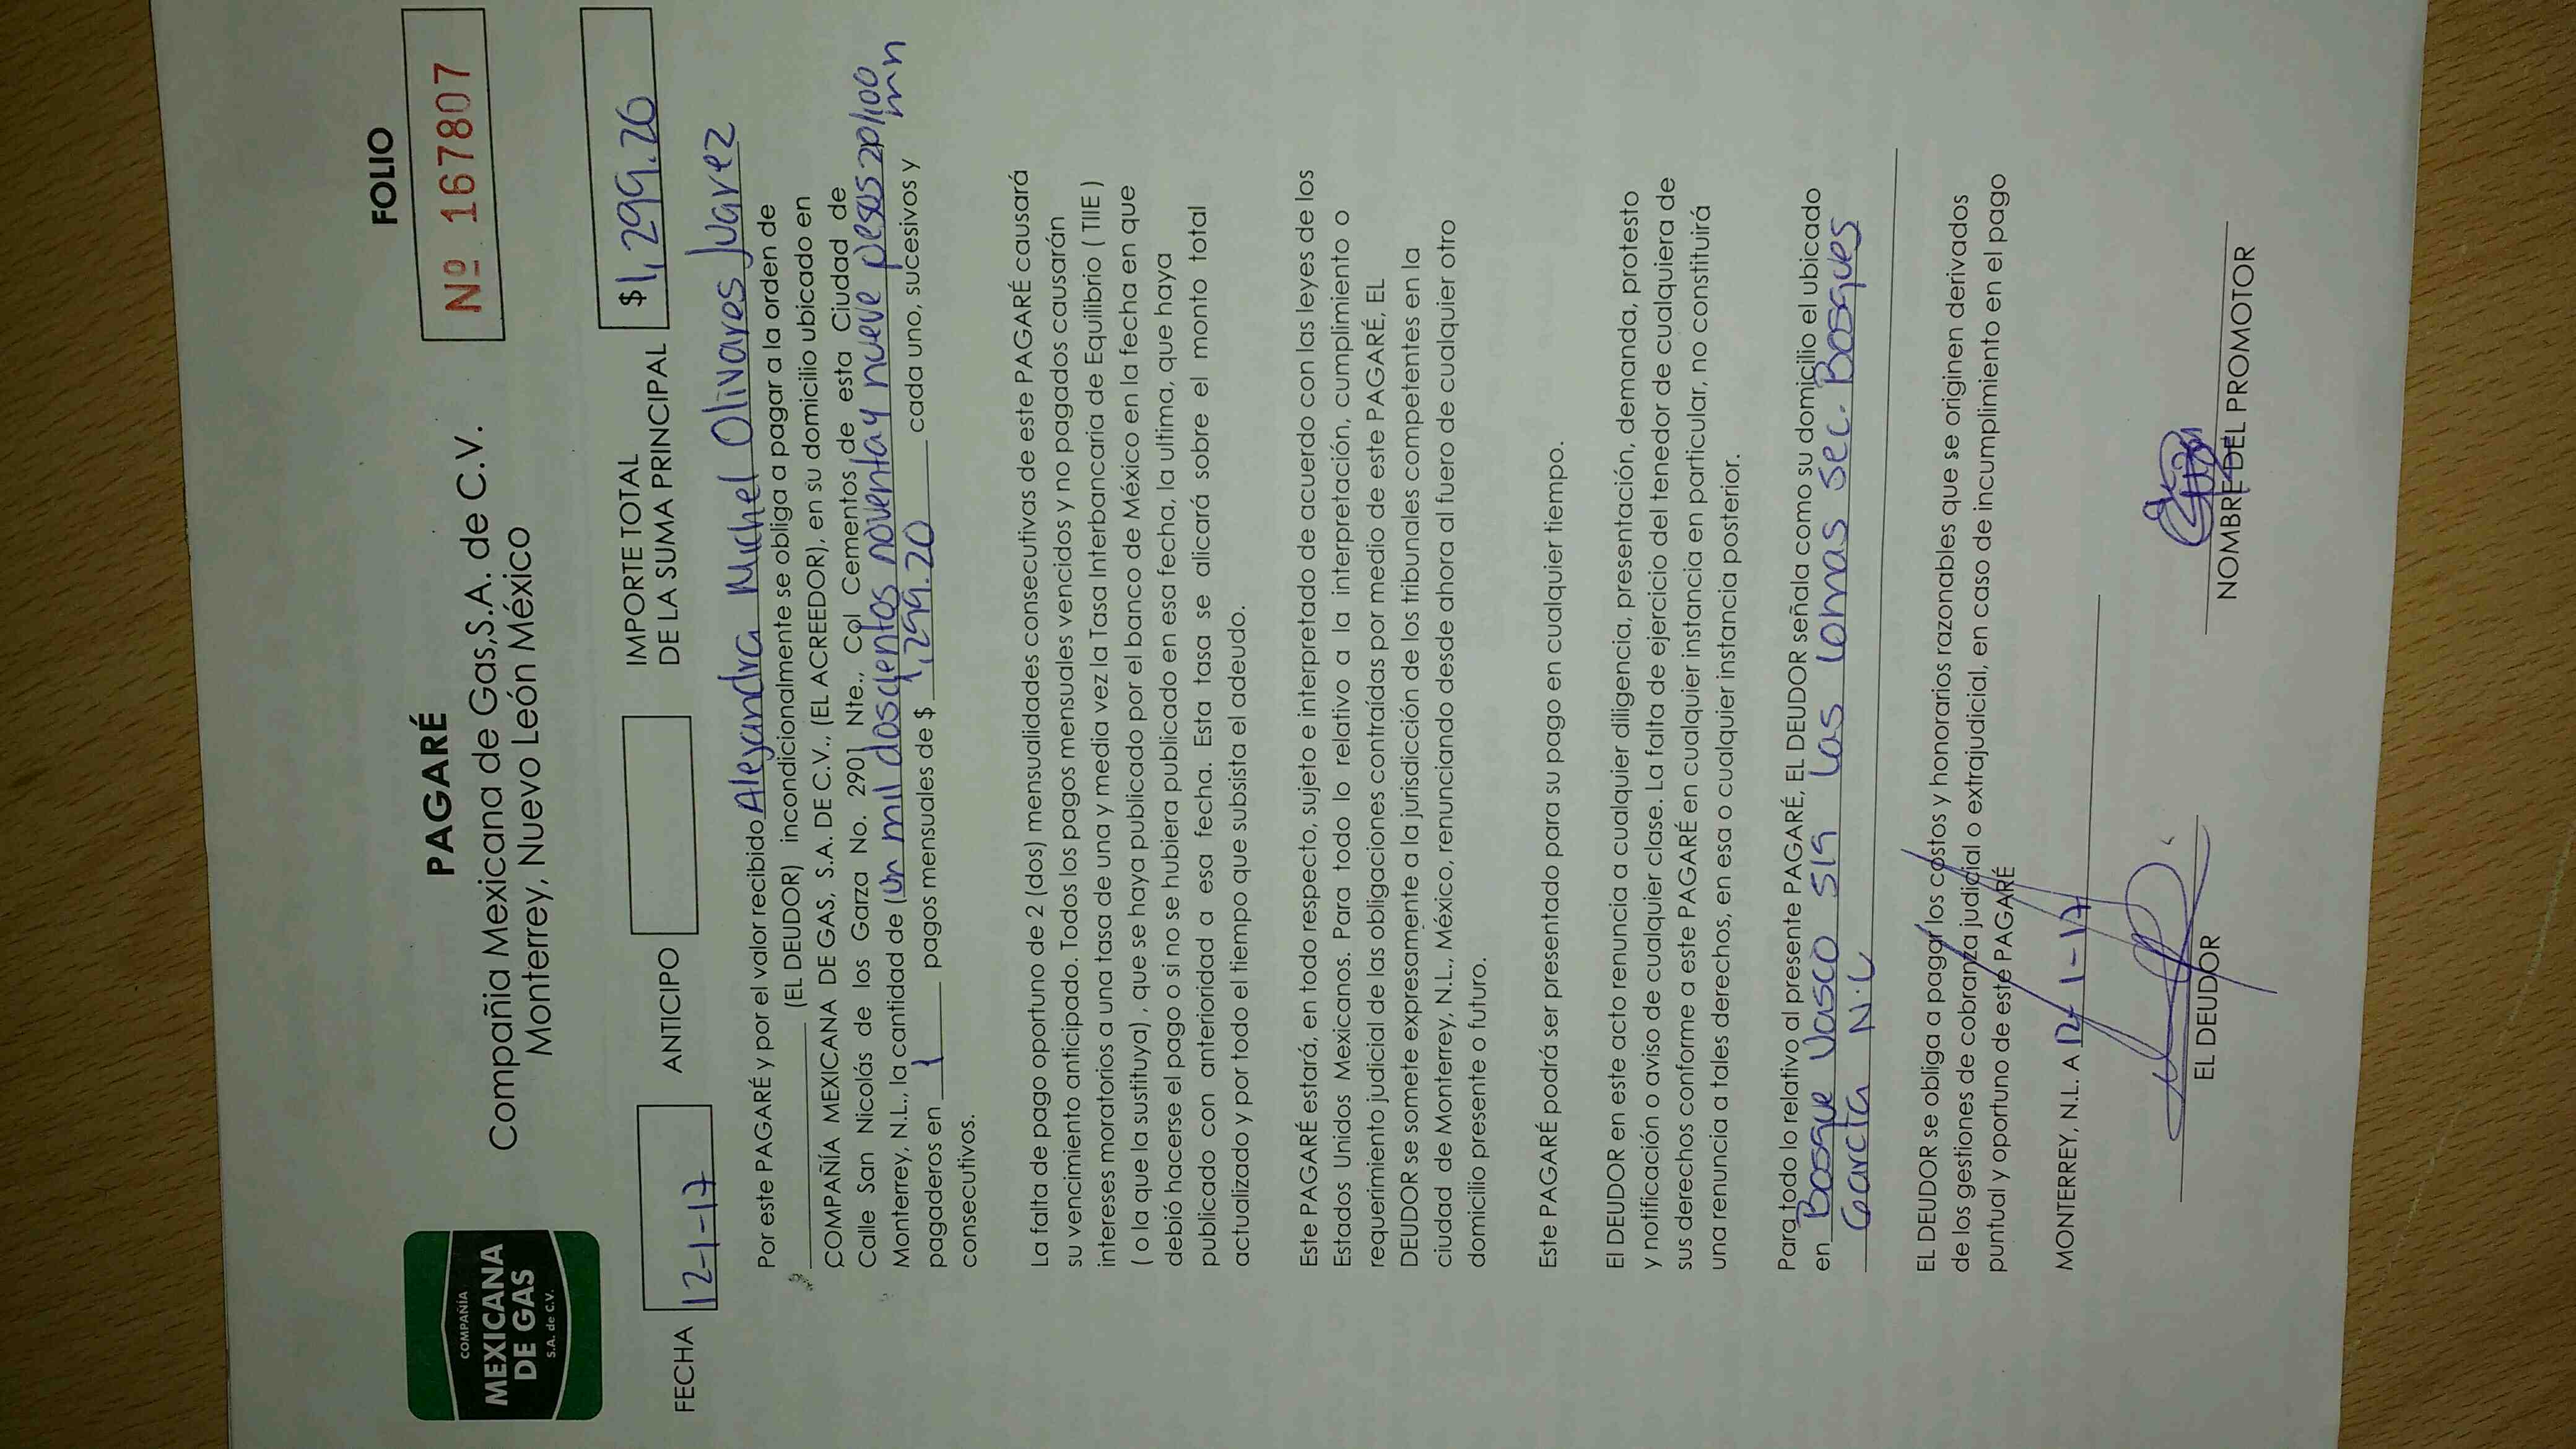 COMPAÑÍA
MEXICANA
DE GAS
S.A. de C.V.
PAGARÉ
Compañia Mexicana de Gas,S.A. de C.V.
Monterrey, Nuevo León México
FOLIO
Nº 167807
FECHA 12-1-17 ANTICIPO IMPORTE TOTAL
DE LA SUMA PRINCIPAL $1,299.20
Por este PAGARÉ y por el valor recibido Alejandra Michel Olivares Juarez
(EL DEUDOR) incondicionalmente se obliga a pagar a la orden de
COMPAÑÍA MEXICANA DE GAS, S.A. DE C.V., (EL ACREEDOR), en su domicilio ubicado en
Calle San Nicolás de los Garza No. 2901 Nte., Col Cementos de esta Ciudad de
Monterrey, N.L., la cantidad de (Un mil doscientos noventa y nueve pesos 20/100
mn
pagaderos en 1 pagos mensuales de $ 1,299.20 cada uno, sucesivos y
consecutivos.
La falta de pago oportuno de 2 (dos) mensualidades consecutivas de este PAGARÉ causará
su vencimiento anticipado. Todos los pagos mensuales vencidos y no pagados causarán
intereses moratorios a una tasa de una y media vez la Tasa Interbancaria de Equilibrio ( TIIE )
( o la que la sustituya) , que se haya publicado por el banco de México en la fecha en que
debió hacerse el pago o si no se hubiera publicado en esa fecha, la ultima, que haya
publicado con anterioridad a esa fecha. Esta tasa se alicará sobre el monto total
actualizado y por todo el tiempo que subsista el adeudo.
Este PAGARÉ estará, en todo respecto, sujeto e interpretado de acuerdo con las leyes de los
Estados Unidos Mexicanos. Para todo lo relativo a la interpretación, cumplimiento o
requerimiento judicial de las obligaciones contraídas por medio de este PAGARÉ, EL
DEUDOR se somete expresamente a la jurisdicción de los tribunales competentes en la
ciudad de Monterrey, N.L., México, renunciando desde ahora al fuero de cualquier otro
domicilio presente o futuro.
Este PAGARÉ podrá ser presentado para su pago en cualquier tiempo.
El DEUDOR en este acto renuncia a cualquier diligencia, presentación, demanda, protesto
y notificación o aviso de cualquier clase. La falta de ejercicio del tenedor de cualquiera de
sus derechos conforme a este PAGARÉ en cualquier instancia en particular, no constituirá
una renuncia a tales derechos, en esa o cualquier instancia posterior.
Para todo lo relativo al presente PAGARÉ, EL DEUDOR señala como su domicilio el ubicado
en Bosque Vasco 519 Las Lomas Sec. Bosques
Garcia N.L
EL DEUDOR se obliga a pagar los costos y honorarios razonables que se originen derivados
de los gestiones de cobranza judicial o extrajudicial, en caso de incumplimiento en el pago
puntual y oportuno de este PAGARÉ
MONTERREY, N.L. A 12-1-17
EL DEUDOR
NOMBRE DEL PROMOTOR